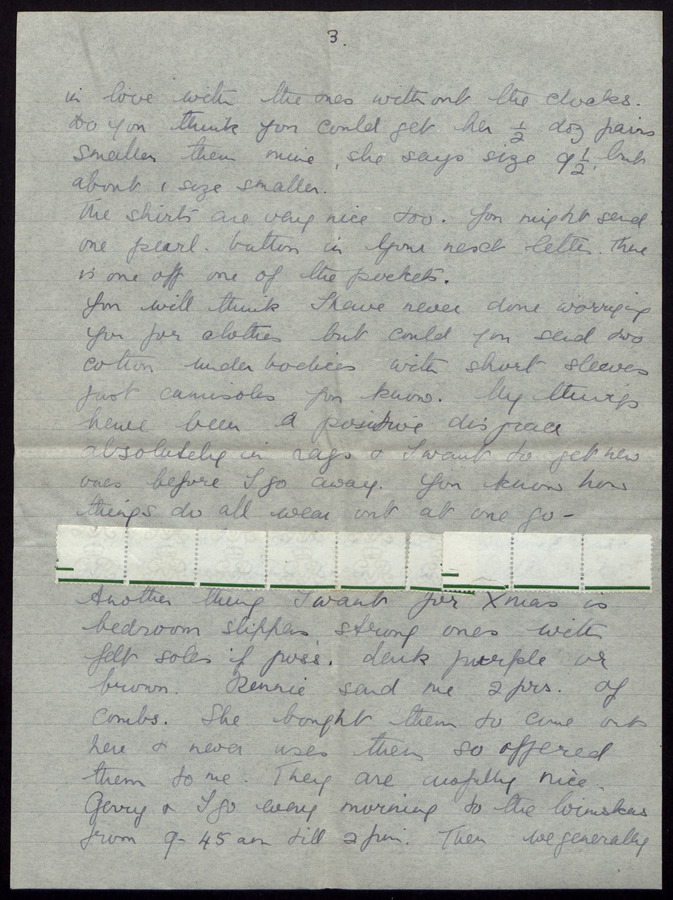 3.
in love with the ones without the clocks.
Do you think you could get her ½ doz pairs
smaller then mine, she says size 9½ but
about 1 size smaller.
The shirts are very nice too. You might send
one pearl. button in your next letter. There
is one off one of the pockets.
You will think I have never done worrying
you for clothes but could you send two
cotton under bodices with short sleeves
just camisoles you know. My things
have been a positive disgrace
absolutely in rags & I want to get new
ones before I go away. You know how
things do all wear out at one go -
Another thing I want for Xmas is
bedroom slippers, strong ones with
felt soles if poss. dark purple or
brown. Rennie send me 2 prs. of
combs. She bought them to come out
here & never uses them so offered
them to me. They are awfully nice.
Gerry & I go every morning to the
from 9-45 am till 2 pm. Then we generally